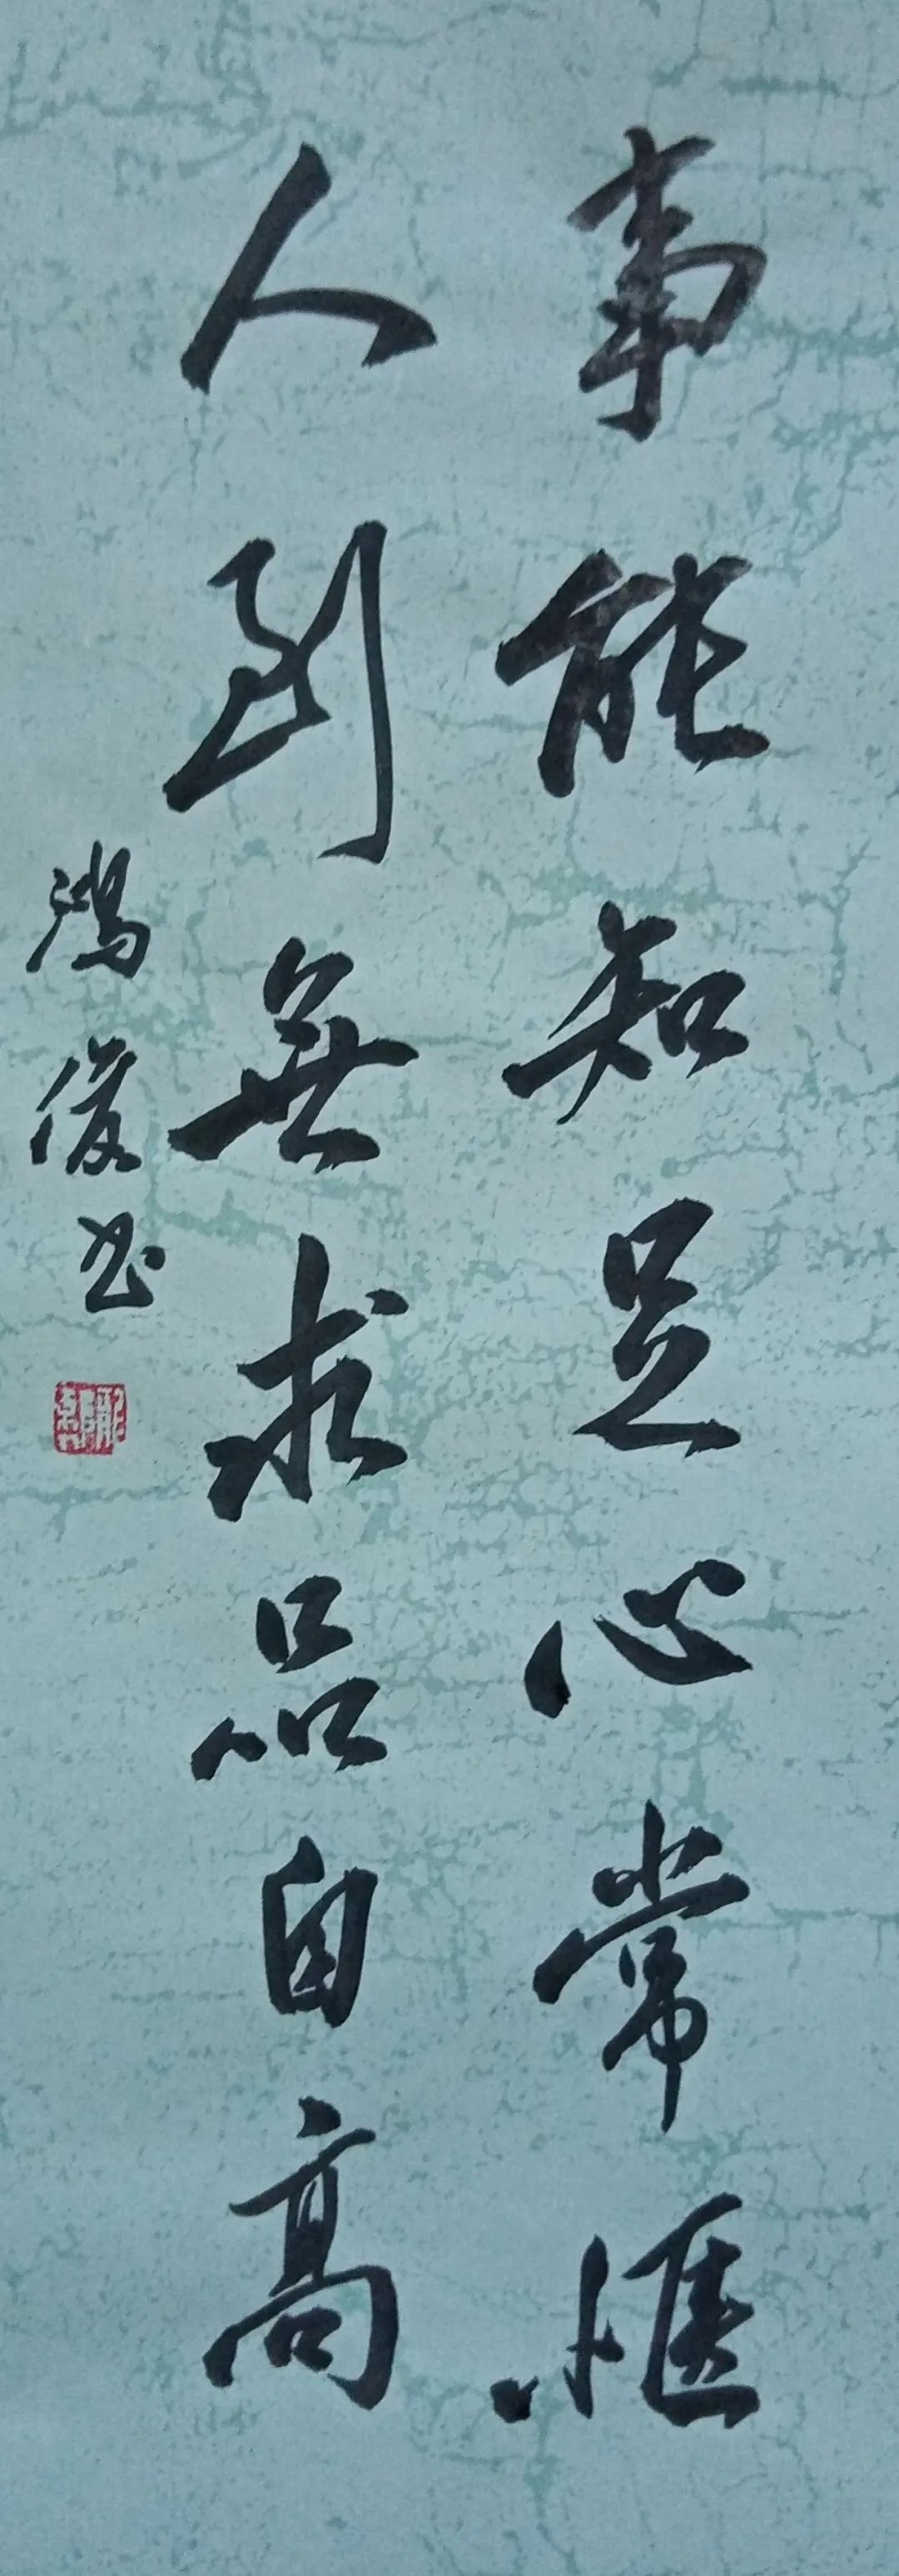 事能知足心常惬
人到無求品自高
鴻俊书